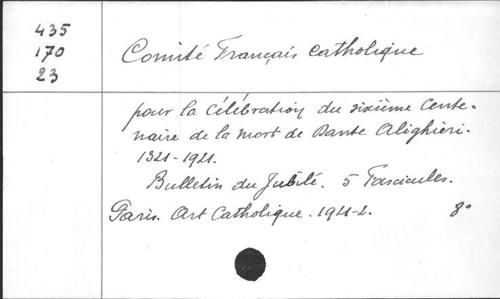 435
170
23
Comité Français Catholique
pour la Célébration du sixième Cente-
naire de la mort de Dante Alighieri.
1321-1921.
Bulletin du Jubilé. 5 Fascicules.
Paris. Art Catholique. 1921-2. 8°